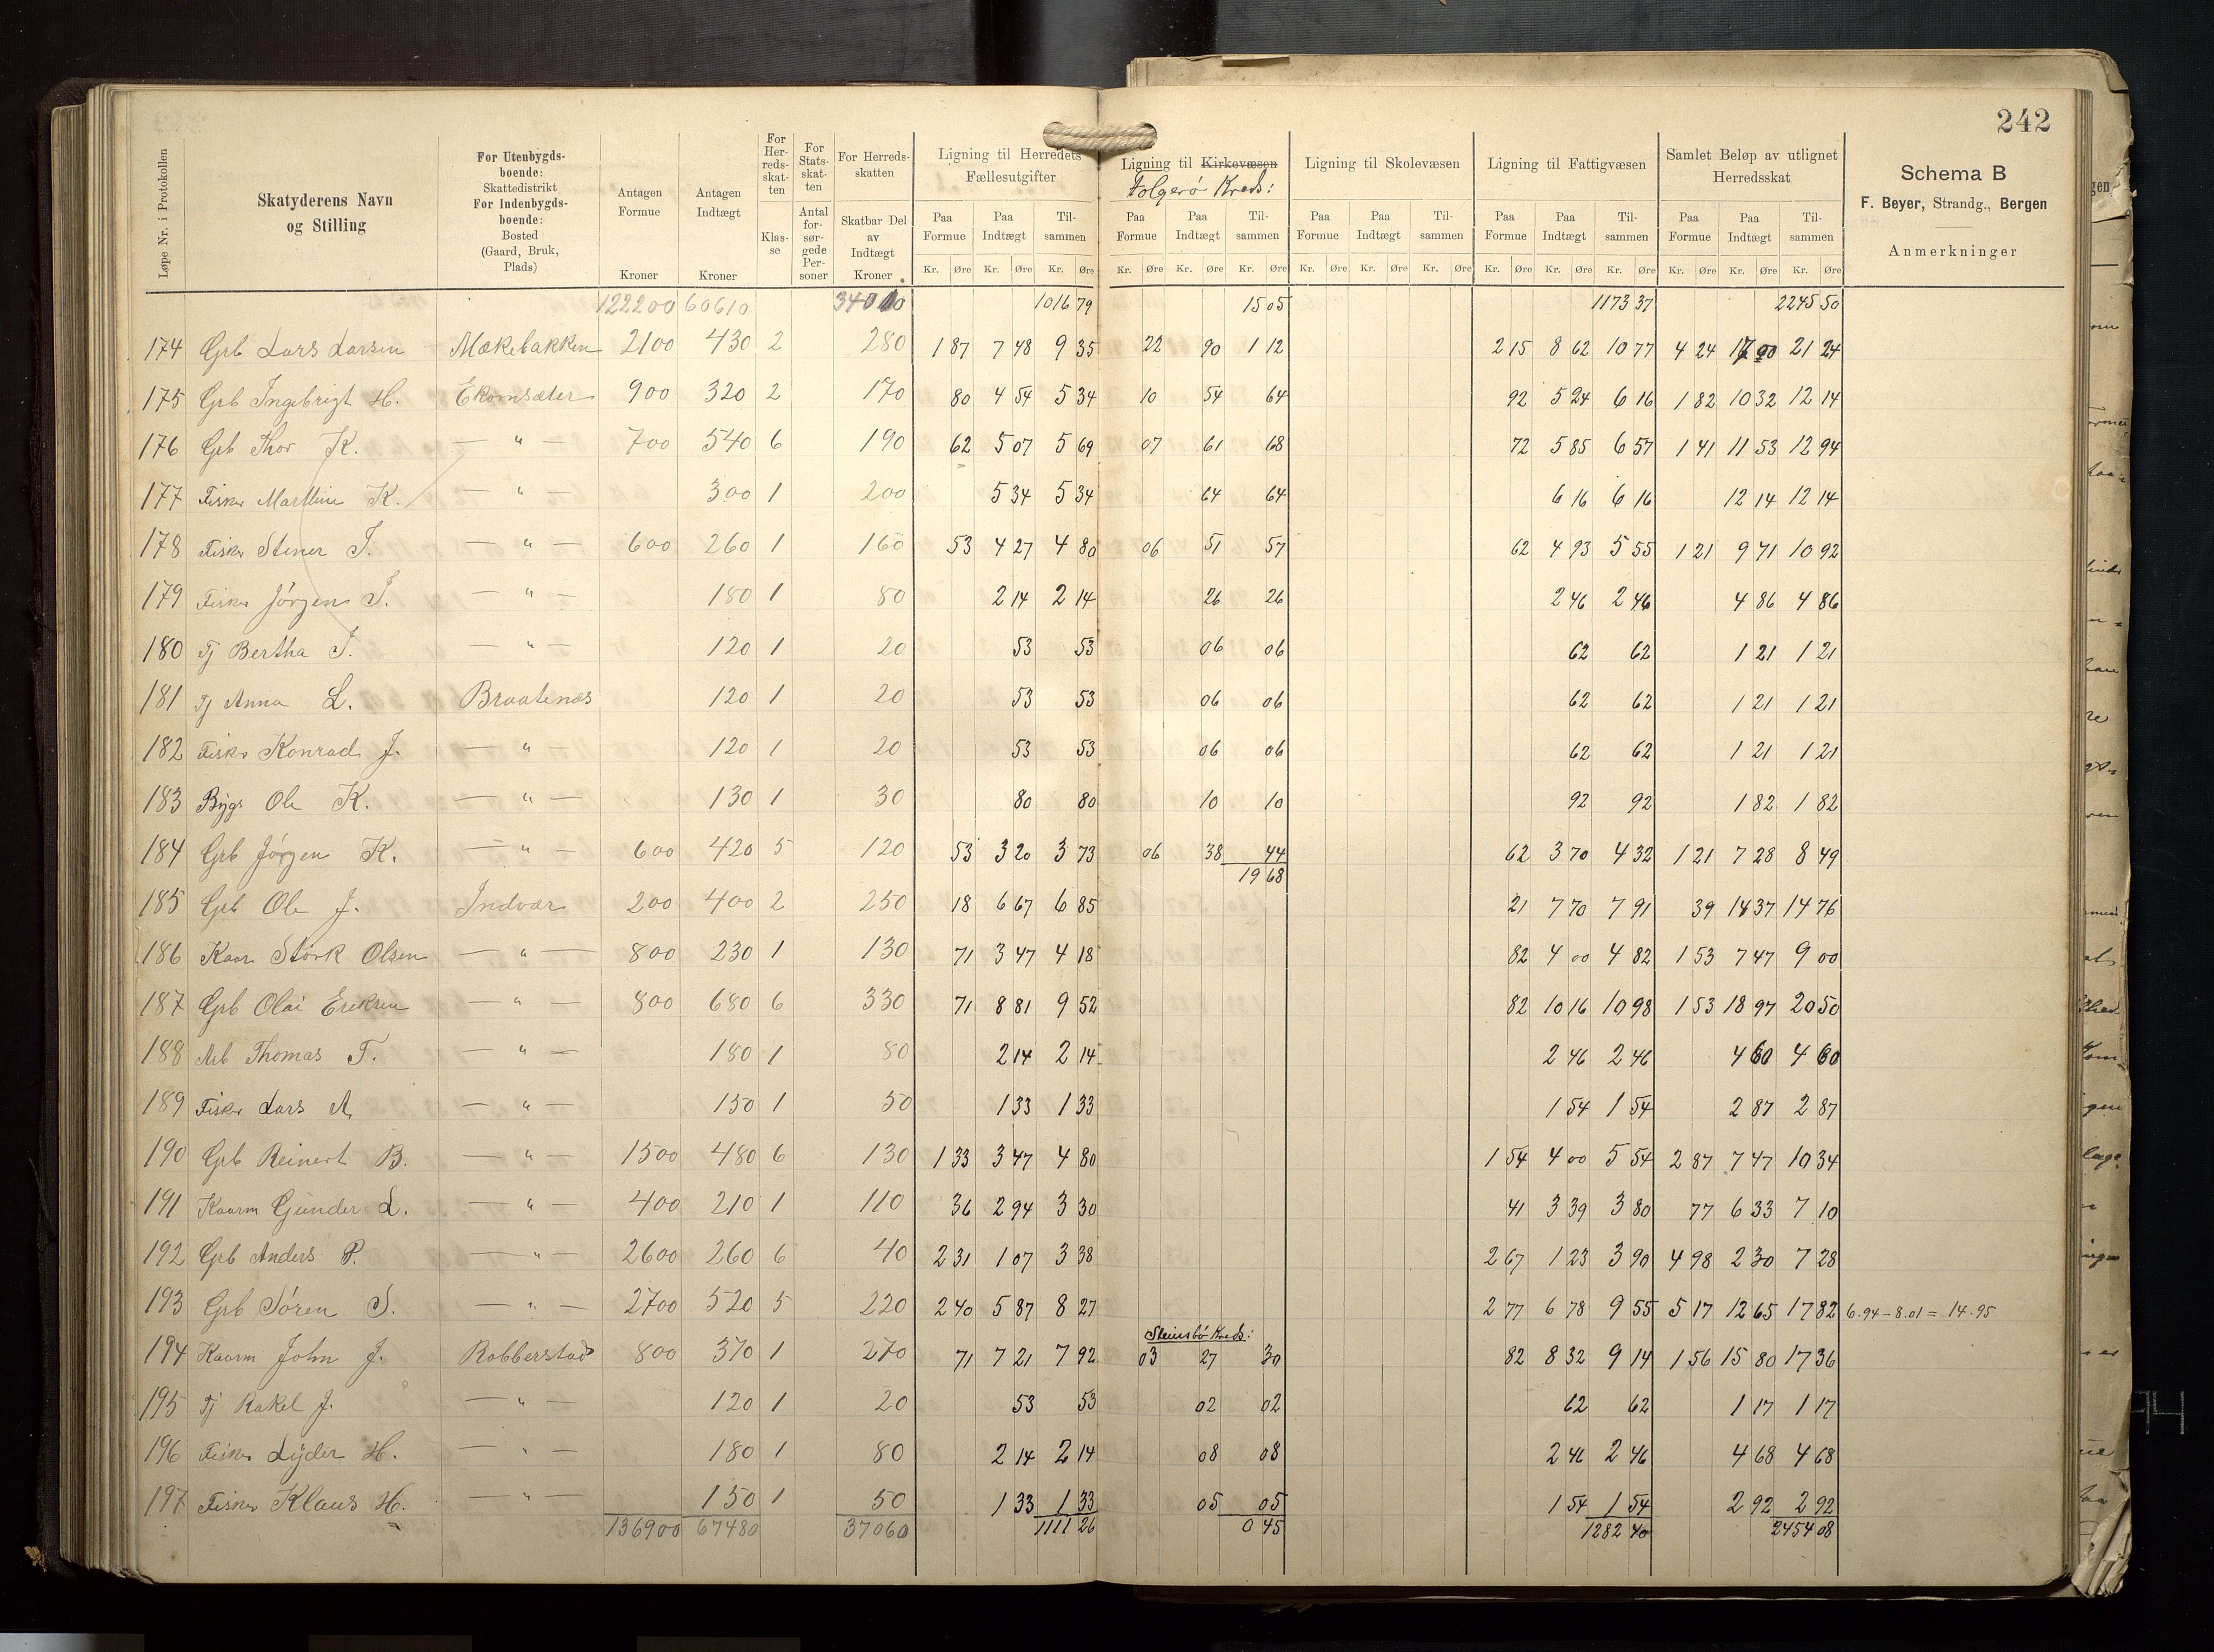 242
Løpe Nr. i Protokollen | Skatyderens Navn og Stilling | For Utenbygdsboende: Skattedistrikt For Indenbygdsboende: Bosted (Gaard, Bruk, Plads) | Antagen Formue Kroner | Antagen Indtægt Kroner | For Herredsskatten Klasse | For Statsskatten Antal forsørgede Personer | For Herredsskatten Skatbar Del av Indtægt Kroner | Ligning til Herredets Fællesutgifter | Ligning til Kirkevæsen Folgerø Kreds: | Ligning til Skolevæsen | Ligning til Fattigvæsen | Samlet Beløp av utlignet Herredsskat | Schema B F. Beyer, Strandg., Bergen Anmerkninger
Paa Formue | Paa Indtægt | Tilsammen | Paa Formue | Paa Indtægt | Tilsammen | Paa Formue | Paa Indtægt | Tilsammen | Paa Formue | Paa Indtægt | Tilsammen | Paa Formue | Paa Indtægt | Tilsammen
Kr. Øre | Kr. Øre | Kr. Øre | Kr. Øre | Kr. Øre | Kr. Øre | Kr. Øre | Kr. Øre | Kr. Øre | Kr. Øre | Kr. Øre | Kr. Øre | Kr. Øre | Kr. Øre | Kr. Øre
122200 60610 34010 1016 79 15 05 1173 37 2245 50
174 Grb Lars Larsen Mækebakken 2100 430 2 280 1 87 7 48 9 35 22 90 1 12 2 15 8 62 10 77 4 24 17 00 21 24
175 Grb Ingebrigt H. Ekornsæter 900 320 2 170 80 4 54 5 34 10 54 64 92 5 24 6 16 1 82 10 32 12 14
176 Grb Thor K. — " — 700 540 6 190 62 5 07 5 69 07 61 68 72 5 85 6 57 1 41 11 53 12 94
177 Fisker Martin K. — " — 300 1 200 5 34 5 34 64 64 6 16 6 16 12 14 12 14
178 Fisker Stener J. — " — 600 260 1 160 53 4 27 4 80 06 51 57 62 4 93 5 55 1 21 9 71 10 92
179 Fisker Jørgen J. — " — 180 1 80 2 14 2 14 26 26 2 46 2 46 4 86 4 86
180 Tj Bertha J. — " — 120 1 20 53 53 06 06 62 62 1 21 1 21
181 Tj Anna L. Braatenæs 120 1 20 53 53 06 06 62 62 1 21 1 21
182 Fisker Konrad J. — " — 120 1 20 53 53 06 06 62 62 1 21 1 21
183 Bygs Ole K. — " — 130 1 30 80 80 10 10 92 92 1 82 1 82
184 Grb Jørgen K. — " — 600 420 5 120 53 3 20 3 73 06 38 44 62 3 70 4 32 1 21 7 28 8 49
19 68
185 Grb Ole J. Indvær 200 400 2 250 18 6 67 6 85 21 7 70 7 91 39 14 37 14 76
186 Kaar Størk Olsen — " — 800 230 1 130 71 3 47 4 18 82 4 00 4 82 1 53 7 47 9 00
187 Grb Olai Eriksen — " — 800 680 6 330 71 8 81 9 52 82 10 16 10 98 1 53 18 97 20 50
188 Arb Thomas T. — " — 180 1 80 2 14 2 14 2 46 2 46 4 60 4 60
189 Fisker Lars A — " — 150 1 50 1 33 1 33 1 54 1 54 2 87 2 87
190 Grb Reinert B. — " — 1500 480 6 130 1 33 3 47 4 80 1 54 4 00 5 54 2 87 7 47 10 34
191 Kaarm Gunder L. — " — 400 210 1 110 36 2 94 3 30 41 3 39 3 80 77 6 33 7 10
192 Grb Anders P. — " — 2600 260 6 40 2 31 1 07 3 38 2 67 1 23 3 90 4 98 2 30 7 28
193 Grb Søren S. — " — 2700 520 5 220 2 40 5 87 8 27 2 77 6 78 9 55 5 17 12 65 17 82 6.94 – 8.01 = 14.95
Steinsbø Kreds:
194 Kaarm John J. Robberstad 800 370 1 270 71 7 21 7 92 03 27 30 82 8 32 9 14 1 56 15 80 17 36
195 Tj Rakel J. — " — 120 1 20 53 53 02 02 62 62 1 17 1 17
196 Fisker Lyder H. — " — 180 1 80 2 14 2 14 08 08 2 46 2 46 4 68 4 68
197 Fisker Klaus H. — " — 150 1 50 1 33 1 33 05 05 1 54 1 54 2 92 2 92
136900 67480 37060 1111 26 0 45 1282 40 2454 08